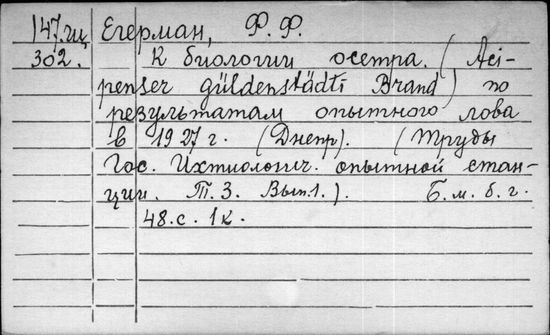 147.гщ Егерман, Ф. Ф.
302. К биологии осетра. (Aci-
penser güldenstädti Brand) по
результатам опытного лова
в 1927 г. (Днепр). (Труды
Гос. Ихтиологич. опытной стан-
ции. Т. 3. Вып. 1.). Б. м. б. г.
48. с. 1 к.